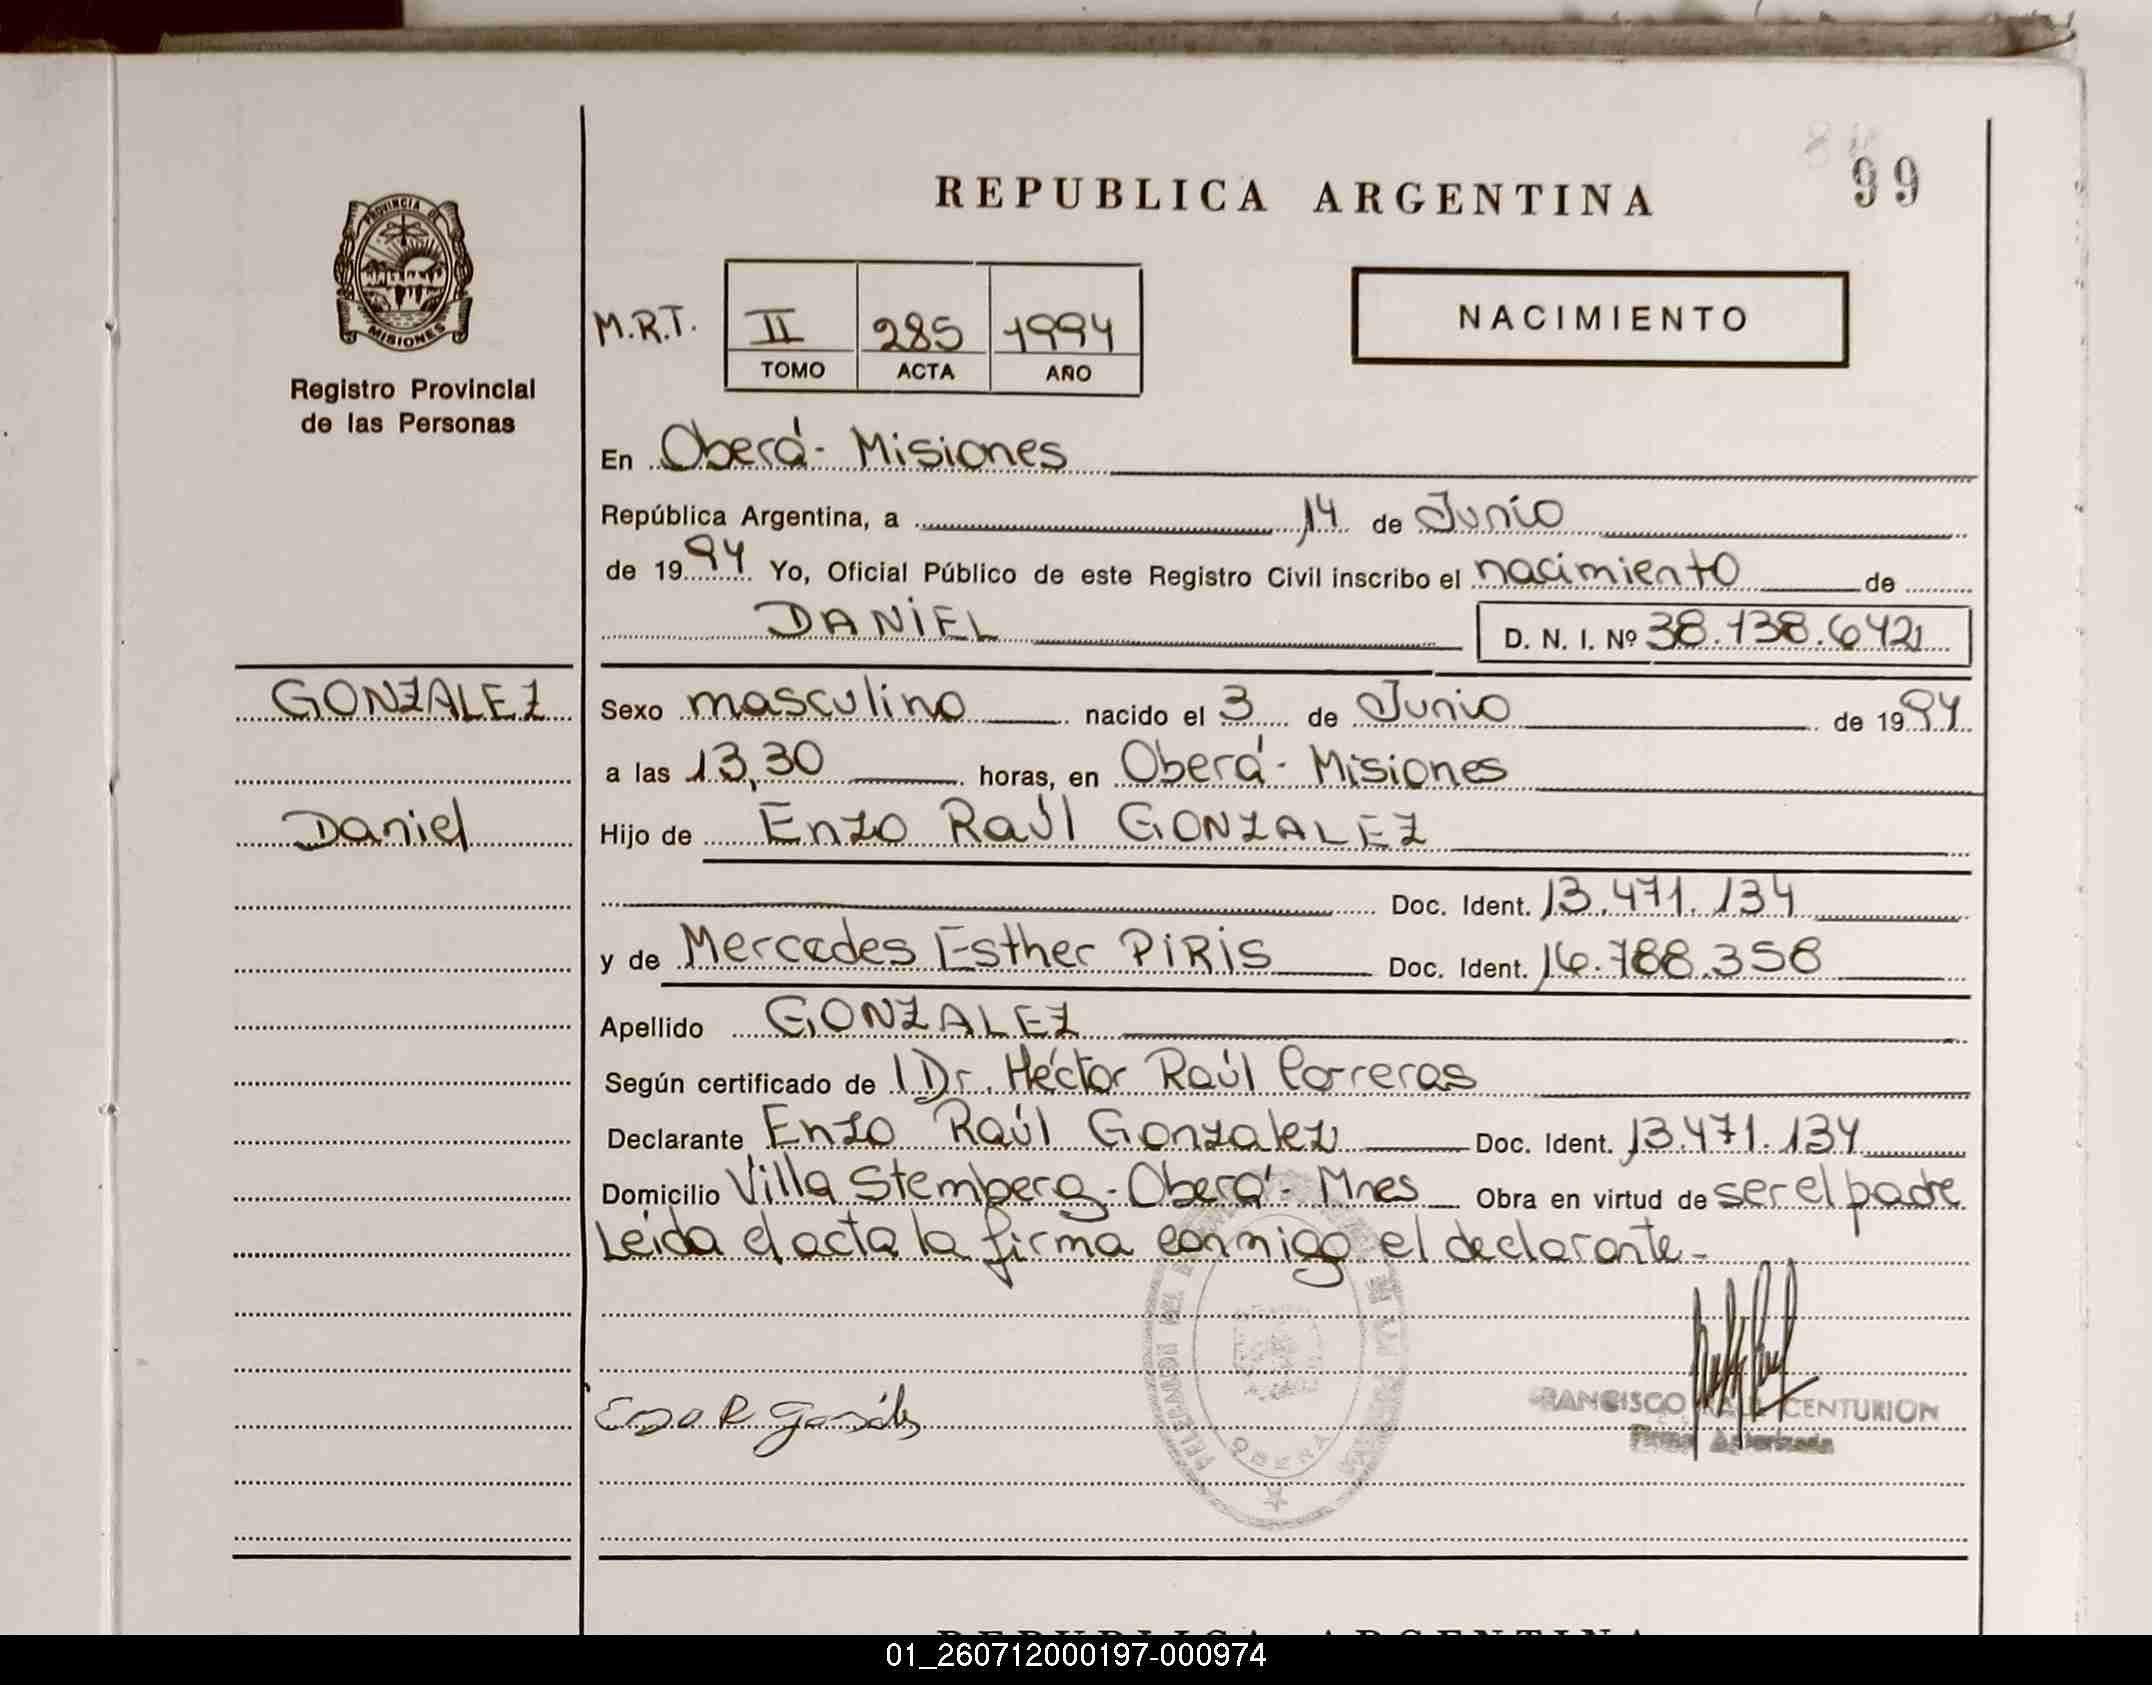 REPUBLICA ARGENTINA
99
PROVINCIA DE
MISIONES
Registro Provincial
de las Personas
M.R.T.
II 285 1994
TOMO ACTA AÑO
NACIMIENTO
En Oberá - Misiones
República Argentina, a 14 de Junio
de 1994 Yo, Oficial Público de este Registro Civil inscribo el nacimiento de
DANIEL D. N. I. Nº 38.138.642
GONZALEZ
Daniel
Sexo masculino nacido el 3 de Junio de 1994
a las 13,30 horas, en Oberá - Misiones
Hijo de Enzo Raúl GONZALEZ
Doc. Ident. 13.471.134
y de Mercedes Esther PIRIS Doc. Ident. 16.788.358
Apellido GONZALEZ
Según certificado de Dr. Héctor Raúl Porreras
Declarante Enzo Raúl Gonzalez Doc. Ident. 13.471.134
Domicilio Villa Stemberg - Oberá - Mnes Obra en virtud de ser el padre
Leida el acta la firma conmigo el declarante -
Enzo R González
OBERA
FRANCISCO RAUL CENTURION
Firma Autorizada
REPUBLICA ARGENTINA
01_260712000197-000974